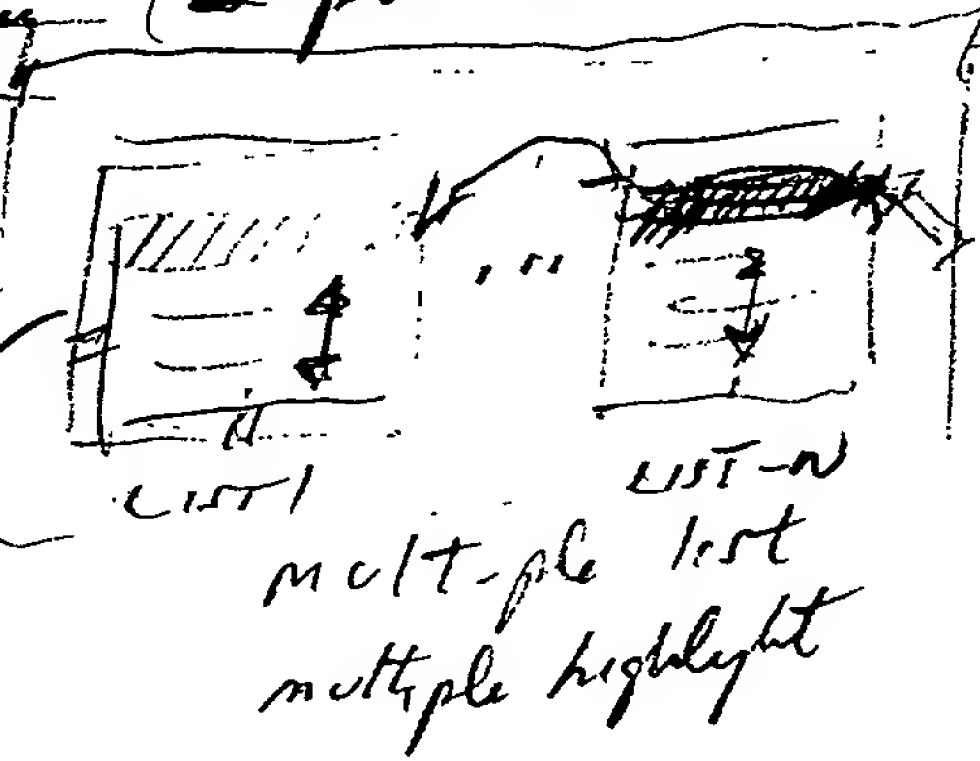 LIST 1
LIST-N
multiple list
multiple highlight